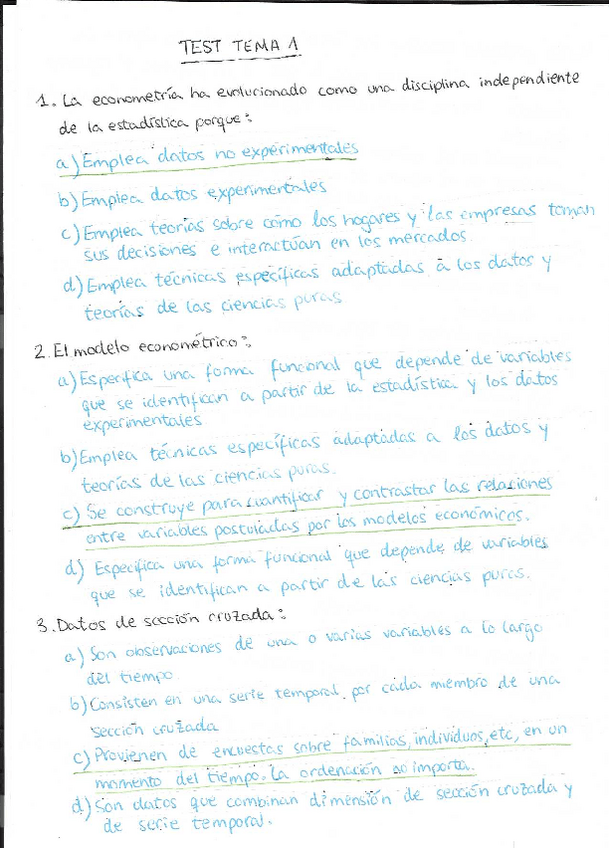 TEST TEMA 1
1. La econometría ha evolucionado como una disciplina independiente
de la estadística porque:
a) Emplea datos no experimentales
b) Emplea datos experimentales
c) Emplea teorías sobre cómo los hogares y las empresas toman
sus decisiones e interactúan en los mercados.
d) Emplea técnicas específicas adaptadas a los datos y
teorías de las ciencias puras
2. El modelo econométrico:
a) Especifica una forma funcional que depende de variables
que se identifican a partir de la estadística y los datos
experimentales
b) Emplea técnicas específicas adaptadas a los datos y
teorías de las ciencias puras.
c) Se construye para cuantificar y contrastar las relaciones
entre variables postuladas por los modelos económicos.
d) Especifica una forma funcional que depende de variables
que se identifican a partir de las ciencias puras.
3. Datos de sección cruzada:
a) Son observaciones de una o varias variables a lo largo
del tiempo.
b) Consisten en una serie temporal por cada miembro de una
sección cruzada
c) Provienen de encuestas sobre familias, individuos, etc, en un
momento del tiempo. La ordenación no importa.
d) Son datos que combinan dimensión de sección cruzada y
de serie temporal.